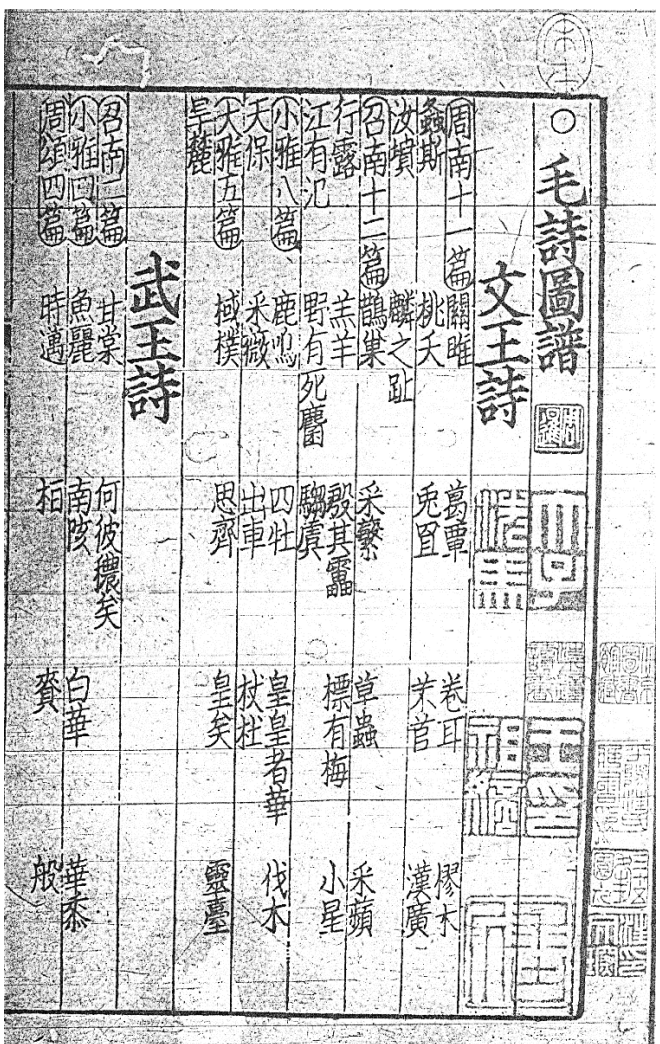 ○毛詩圖譜
周暹
文王詩
周南十一篇 關雎 葛覃 卷耳 樛木
螽斯 桃夭 兎罝 芣苢 漢廣
汝墳 麟之趾
召南十二篇 鵲巢 采蘩 草蟲 采蘋
行露 羔羊 殷其靁 標有梅 小星
江有汜 野有死麕 騶虞
小雅八篇 鹿鳴 四牡 皇皇者華 伐木
天保 采薇 出車 杕杜
大雅五篇 棫樸 思齊 皇矣 靈臺
旱麓
武王詩
召南二篇 甘棠 何彼穠矣
小雅四篇 魚麗 南陔 白華 華黍
周頌四篇 時邁 桓 賚 般